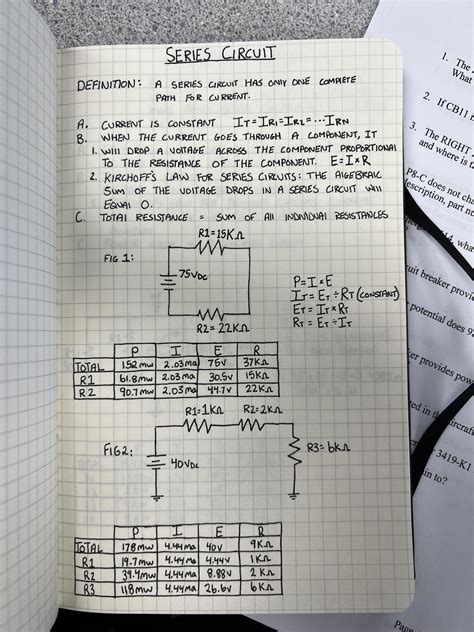 SERIES CIRCUIT
DEFINITION: A SERIES CIRCUIT HAS ONLY ONE COMPLETE
PATH FOR CURRENT.
A. CURRENT IS CONSTANT IT=IR1=IR2=···IRN
B. WHEN THE CURRENT GOES THROUGH A COMPONENT, IT
1. WILL DROP A VOLTAGE ACROSS THE COMPONENT PROPORTIONAL
TO THE RESISTANCE OF THE COMPONENT. E=I×R
2. KIRCHOFF'S LAW FOR SERIES CIRCUITS: THE ALGEBRAIC
SUM OF THE VOLTAGE DROPS IN A SERIES CIRCUIT WILL
EQUAL O.
C. TOTAL RESISTANCE = SUM OF ALL INDIVIDUAL RESISTANCES
R1=15KΩ
FIG 1:
75VDC
R2=22KΩ
P=I×E
IT=ET÷RT (CONSTANT)
ET=IT×RT
RT=ET÷IT
P I E R
TOTAL 152mw 2.03ma 75V 37KΩ
R1 61.8mw 2.03ma 30.5V 15KΩ
R2 90.7mw 2.03ma 44.7V 22KΩ
R1=1KΩ R2=2KΩ
FIG2:
40VDC
R3=6KΩ
P I E R
TOTAL 178mw 4.44ma 40V 9KΩ
R1 19.7mw 4.44ma 4.44V 1KΩ
R2 39.4mw 4.44ma 8.88V 2KΩ
R3 118mw 4.44ma 26.6V 6KΩ
1. The
What
2. If CB11
3. The RIGHT
and where is
P8-C does not
description, part
what
breaker
potential does
provides
ted in the
3419-K1
in to?
Page